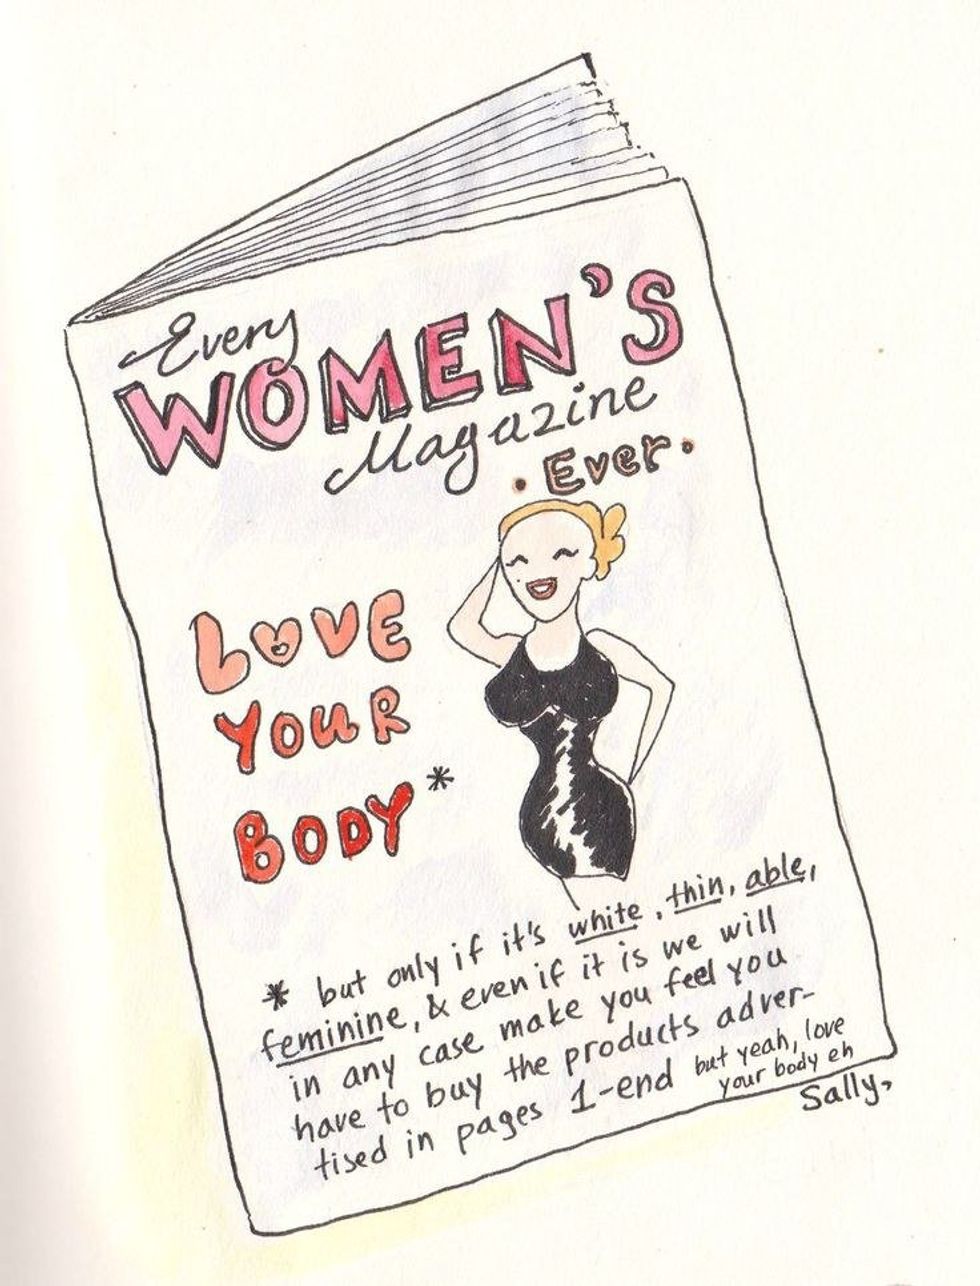 Every
WOMEN'S
Magazine
• Ever •
LOVE
YOUR
BODY*
* but only if it's white, thin, able,
feminine, & even if it is we will
in any case make you feel you
have to buy the products adver-
tised in pages 1-end
but yeah, love
your body eh
Sally,